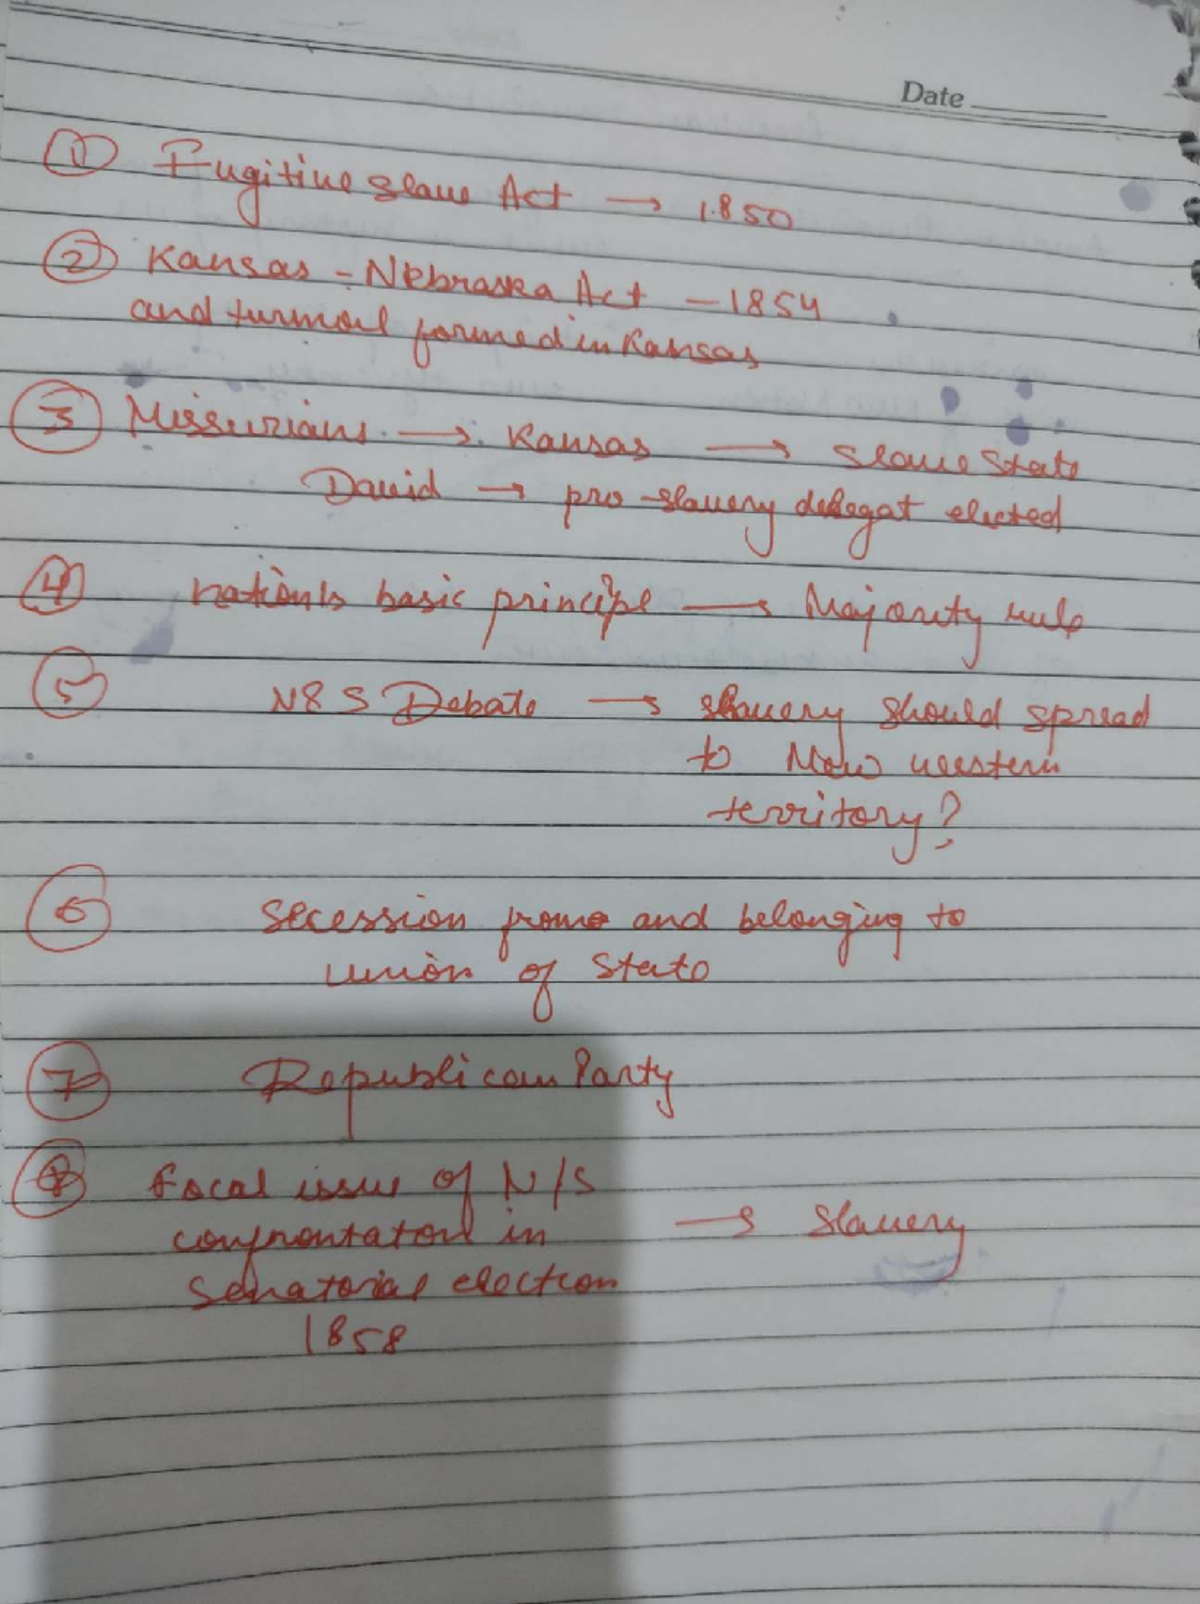 Date
① Fugitive Slave Act → 1850
② Kansas - Nebraska Act - 1854
and turmoil formed in Kansas
③ Missurians → Kansas → Slave State
David → pro-slavery delegat elected
④ nation's basic principle → Majority rule
⑤ N & S Debate → slavery should spread
to New western
territory?
⑥ Secession from and belonging to
union of State
⑦ Republican Party
⑧ Focal issue of N/S
confrontation in → Slavery
Senatorial election
1858